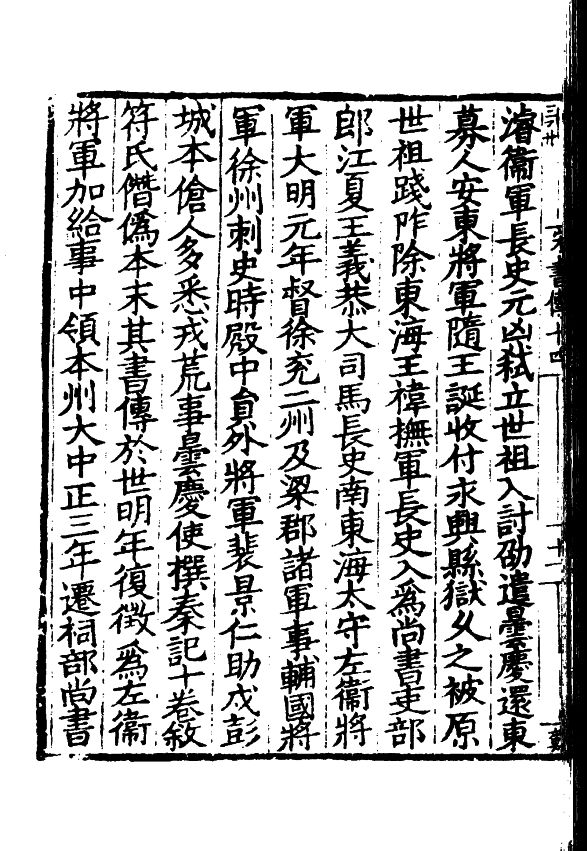 濬衞軍長史元凶弑立世祖入討劭遣曇慶還東
募人安東將軍隨王誕收付永興縣獄乆之被原
世祖踐阼除東海王禕撫軍長史入爲尚書吏部
郎江夏王義恭大司馬長史南東海太守左衞將
軍大明元年督徐兖二州及梁郡諸軍事輔國將
軍徐州刺史時殿中貟外將軍裴景仁助戍彭
城本傖人多悉戎荒事曇慶使撰秦記十卷敘
符氏僭僞本末其書傳於世明年復徵爲左衞
將軍加給事中領本州大中正三年遷祠部尚書